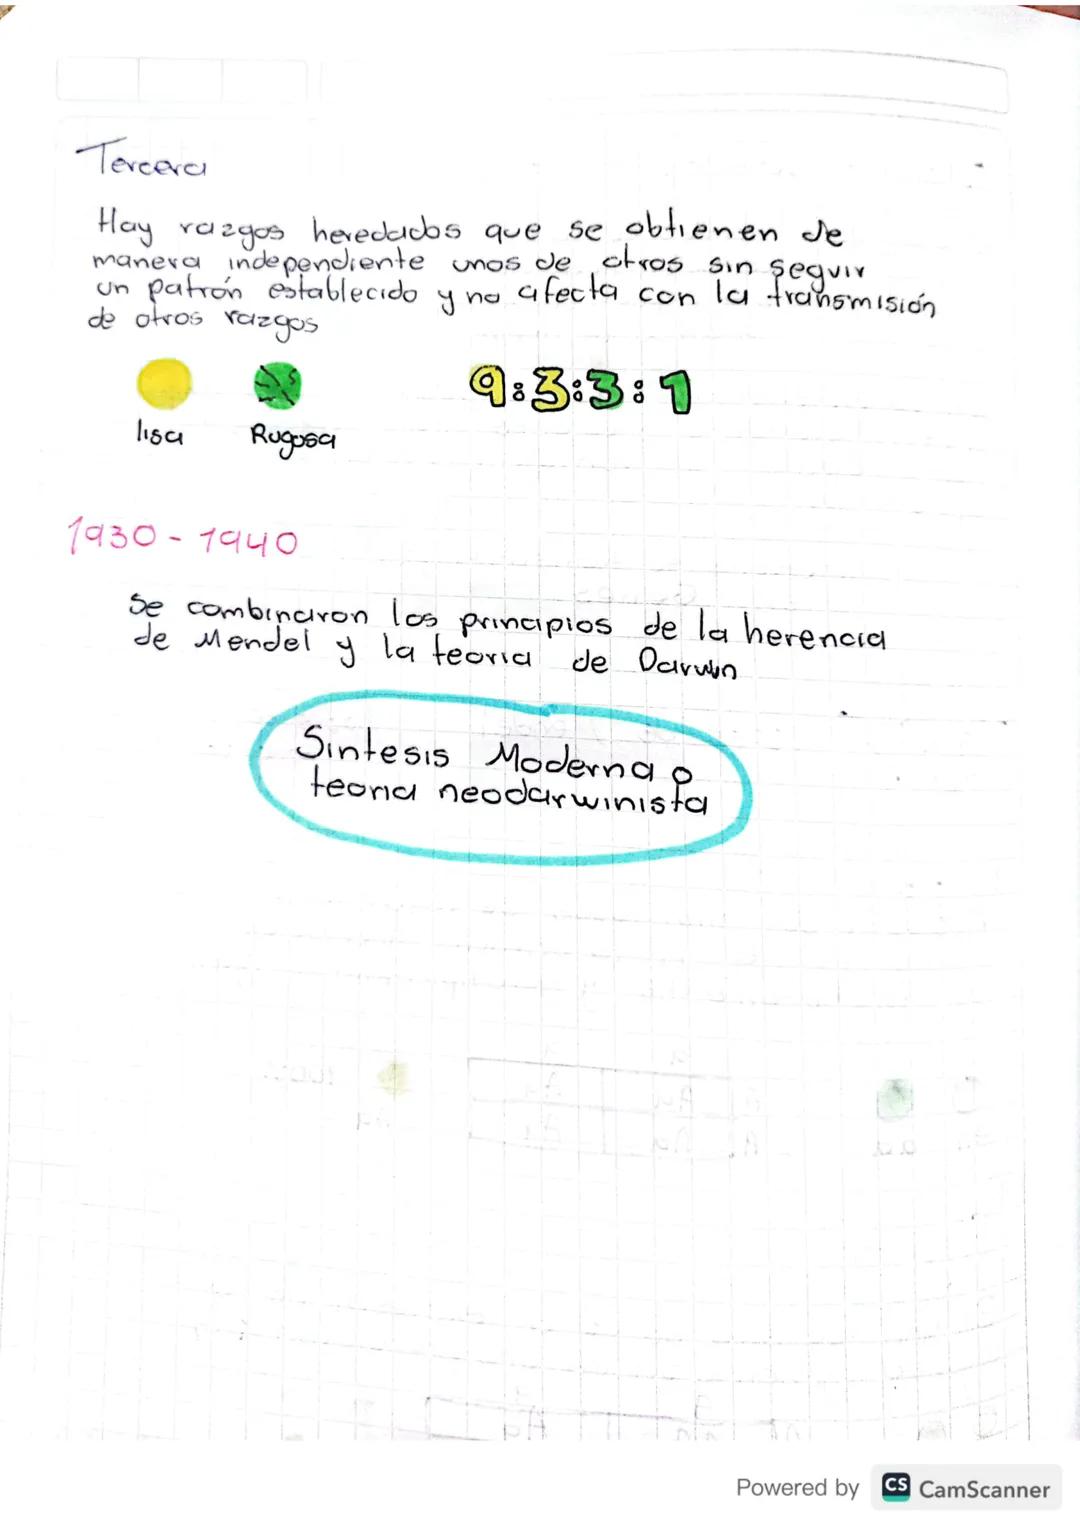 Tercera
Hay razgos heredados que se obtienen de
manera independiente unos de otros sin seguir
un patrón establecido y no afecta con la transmisión
de otros razgos
lisa Rugosa
9:3:3:1
1930 - 1940
Se combinaron los principios de la herencia
de Mendel y la teoria de Darwin
Sintesis Moderna o
teoria neodarwinista
Powered by CS CamScanner